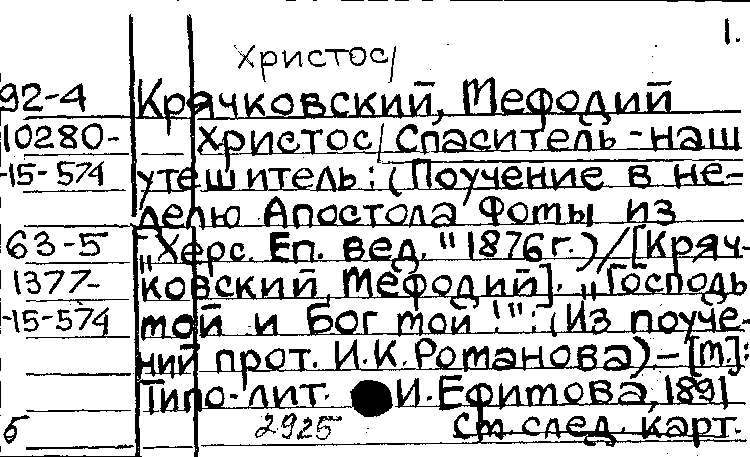 1.
Христос/
92-4 Крячковский, Мефодий
10280- Христос/Спаситель - наш
-15-574 утешитель: (Поучение в не-
делю Апостола Фомы из
63-5 „Херс. Еп. вед." 1876 г.)/[Кряч-
1377- ковский, Мефодий]. „Господь
-15-574 мой и Бог мой!": (Из поуче-
ний прот. И.К.Романова) - [М]:
Типо-лит. И.Ефимова, 1891
б 2925 См. след. карт.